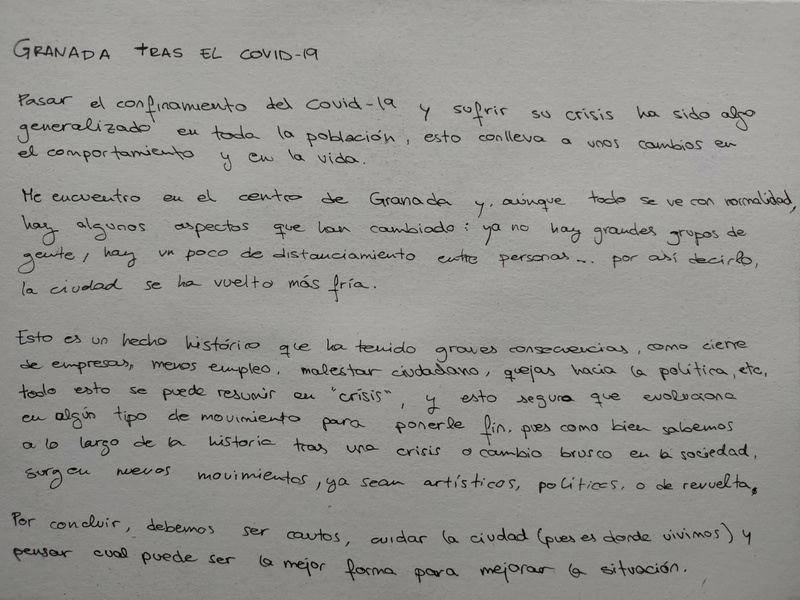 GRANADA TRAS EL COVID-19
Pasar el confinamiento del Covid-19 y sufrir su crisis ha sido algo
generalizado en toda la población, esto conlleva a unos cambios en
el comportamiento y en la vida.
Me encuentro en el centro de Granada y, aunque todo se ve con normalidad,
hay algunos aspectos que han cambiado: ya no hay grandes grupos de
gente, hay un poco de distanciamiento entre personas... por así decirlo,
la ciudad se ha vuelto más fría.
Esto es un hecho histórico que ha tenido graves consecuencias, como cierre
de empresas, menos empleo, malestar ciudadano, quejas hacia la política, etc,
todo esto se puede resumir en "crísis", y esto segura que evoluciona
en algún tipo de movimiento para ponerle fin, pues como bien sabemos
a lo largo de la historia tras una crisis o cambio brusco en la sociedad,
surgen nuevos movimientos, ya sean artísticos, políticos, o de revuelta.
Por concluir, debemos ser cautos, cuidar la ciudad (pues es donde vivimos) y
pensar cual puede ser la mejor forma para mejorar la situación.